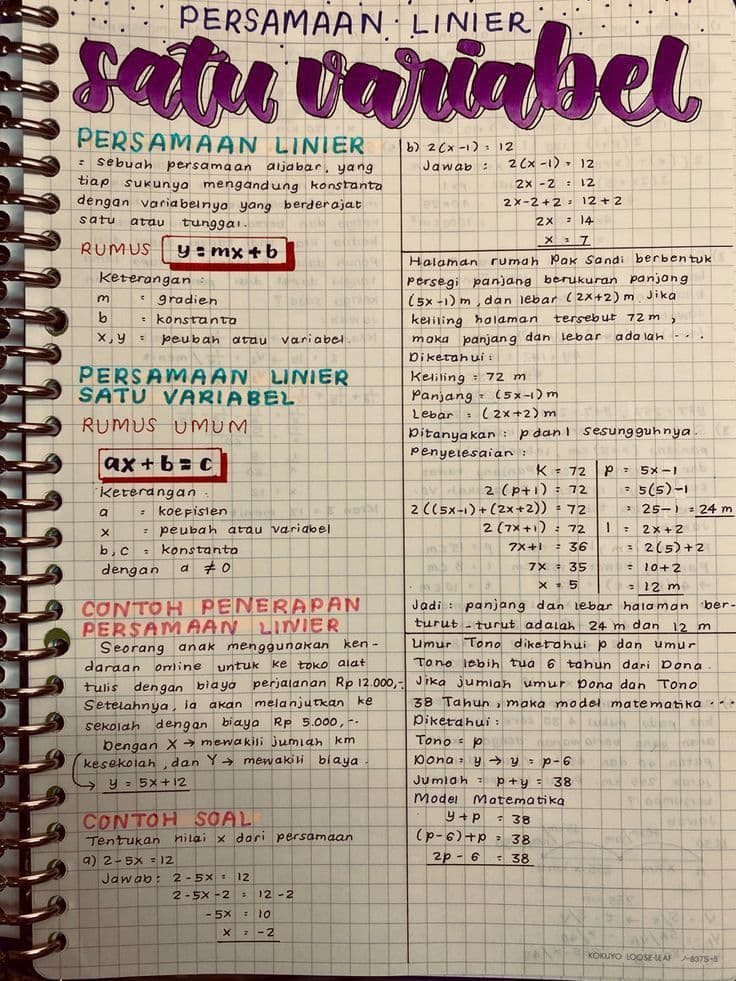 PERSAMAAN LINIER
satu variabel
PERSAMAAN LINIER
= sebuah persamaan aljabar, yang
tiap sukunya mengandung konstanta
dengan variabelnya yang berderajat
satu atau tunggal.
RUMUS y = mx + b
Keterangan :
m = gradien
b = konstanta
x, y = peubah atau variabel.
PERSAMAAN LINIER
SATU VARIABEL
RUMUS UMUM
ax + b = c
Keterangan :
a = koefisien
x = peubah atau variabel
b, c = konstanta
dengan a ≠ 0
CONTOH PENERAPAN
PERSAMAAN LINIER
Seorang anak menggunakan ken-
daraan online untuk ke toko alat
tulis dengan biaya perjalanan Rp 12.000,-.
Setelahnya, ia akan melanjutkan ke
sekolah dengan biaya Rp 5.000,-.
Dengan X → mewakili jumlah km
kesekolah, dan Y → mewakili biaya.
→ y = 5x + 12
CONTOH SOAL
Tentukan nilai x dari persamaan
a) 2 - 5x = 12
Jawab : 2 - 5x = 12
2 - 5x - 2 = 12 - 2
-5x = 10
x = -2
b) 2(x - 1) = 12
Jawab : 2(x - 1) = 12
2x - 2 = 12
2x - 2 + 2 = 12 + 2
2x = 14
x = 7
Halaman rumah Pak Sandi berbentuk
persegi panjang berukuran panjang
(5x - 1) m, dan lebar (2x + 2) m. Jika
keliling halaman tersebut 72 m,
maka panjang dan lebar adalah ...
Diketahui :
Keliling = 72 m
Panjang = (5x - 1) m
Lebar = (2x + 2) m
Ditanyakan : p dan l sesungguhnya.
Penyelesaian :
K = 72
2 (p + l) = 72
2 ((5x - 1) + (2x + 2)) = 72
2 (7x + 1) = 72
7x + 1 = 36
7x = 35
x = 5
p = 5x - 1
= 5(5) - 1
= 25 - 1 = 24 m
l = 2x + 2
= 2(5) + 2
= 10 + 2
= 12 m
Jadi : panjang dan lebar halaman ber-
turut - turut adalah 24 m dan 12 m
Umur Tono diketahui p dan umur
Tono lebih tua 6 tahun dari Dona.
Jika jumlah umur Dona dan Tono
38 Tahun, maka model matematika ...
Diketahui :
Tono = p
Dona = y → y = p - 6
Jumlah = p + y = 38
Model Matematika
y + p = 38
(p - 6) + p = 38
2p - 6 = 38
KOKUYO LOOSE-LEAF ノ-837S-5